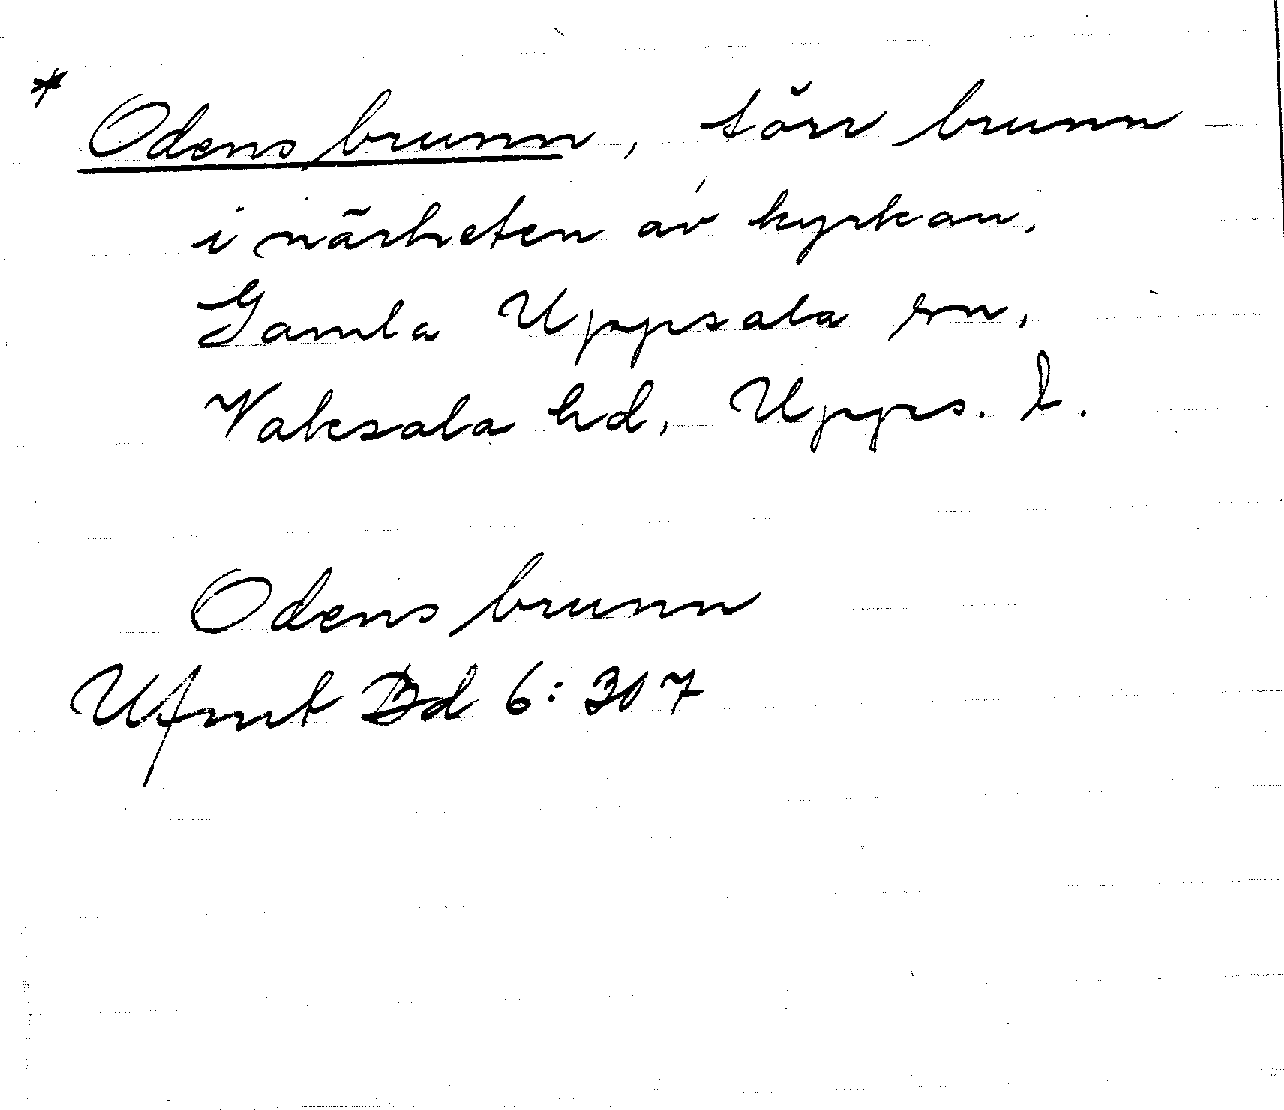 * Odens brunn, torr brunn
i närheten av kyrkan.
Gamla Uppsala sn,
Vaksala hd, Upps. l.
Odens brunn
Ufmt Bd 6: 307